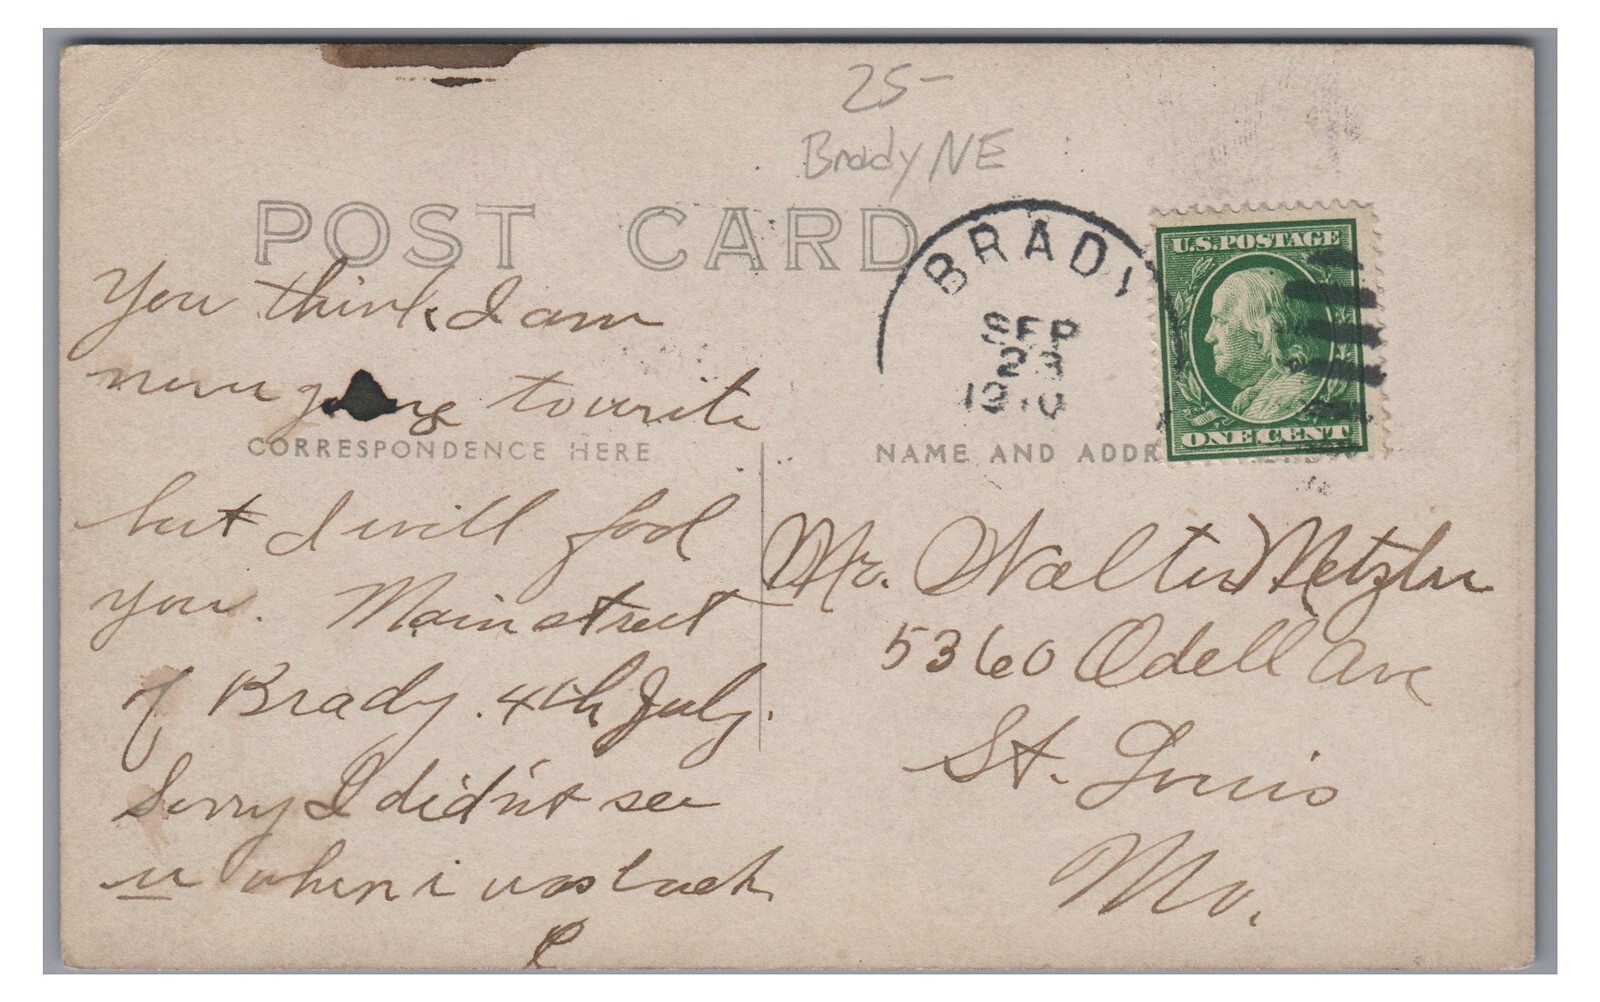 25-
Brady NE
POST CARD
BRADY
SEP
23
1910
U.S. POSTAGE
ONE CENT
You think I am
never going to write
CORRESPONDENCE HERE
but I will fool
you. Main street
of Brady. 4th July.
Sorry I didn't see
u when i was back
P
NAME AND ADDR
Mr. Walter Metzler
5360 Odell Ave
St. Louis
Mo.